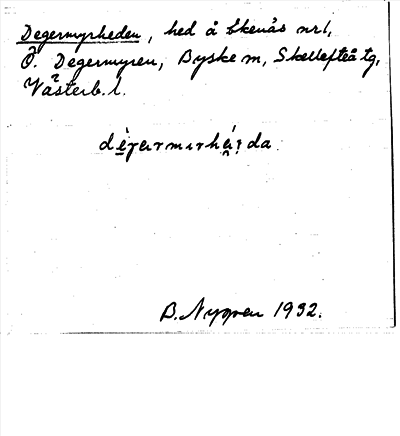 Degermyrheden, hed å Skenås nr 1,
Ö. Degermyren, Byske sn, Skellefteå tg,
Västerb. l.
B. Nygren 1932.